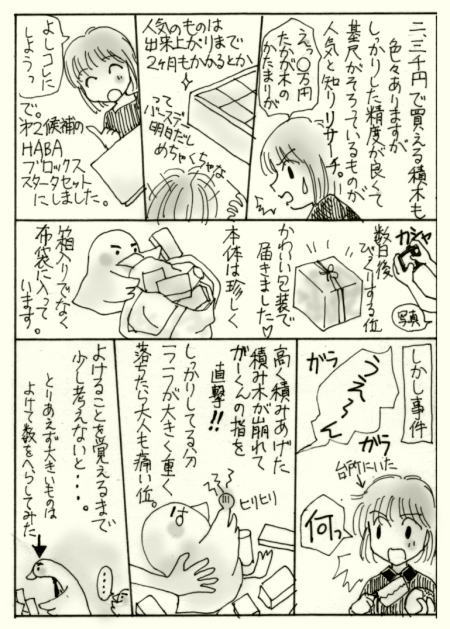 二、三千円で買える積木も
色々ありますが
しっかりした精度が良くて
基尺がそろっているものが
人気と知りリサーチ!!
えっ〇万円
たかが木の
かたまりが
人気のものは
出来上がりまで
2ヶ月もかかるとか
って
バースデー
明日だし
めちゃくちゃな
よしコレに
しようっ
で。
第2候補の
HABA
ブロックス
スターターセット
にしました。
ガシャ
写真
数日後
びっくりする位
かわいい包装で
届きました♡
本体は珍しく
箱入りでなく
布袋に入って
います。
しかし事件
ガラ
うえ〜ん
ガラ
台所にいた
何っ
高く積みあげた
積み木が崩れて
がーくんの指を
直撃!!
ヒリヒリ
は
しっかりしてる分
一つ一つが大きく重く
落ちたら大人も痛い位。
よけることを覚えるまで
少し考えないと・・・。
とりあえず大きいものは
よけて数をへらしてみた
・・・